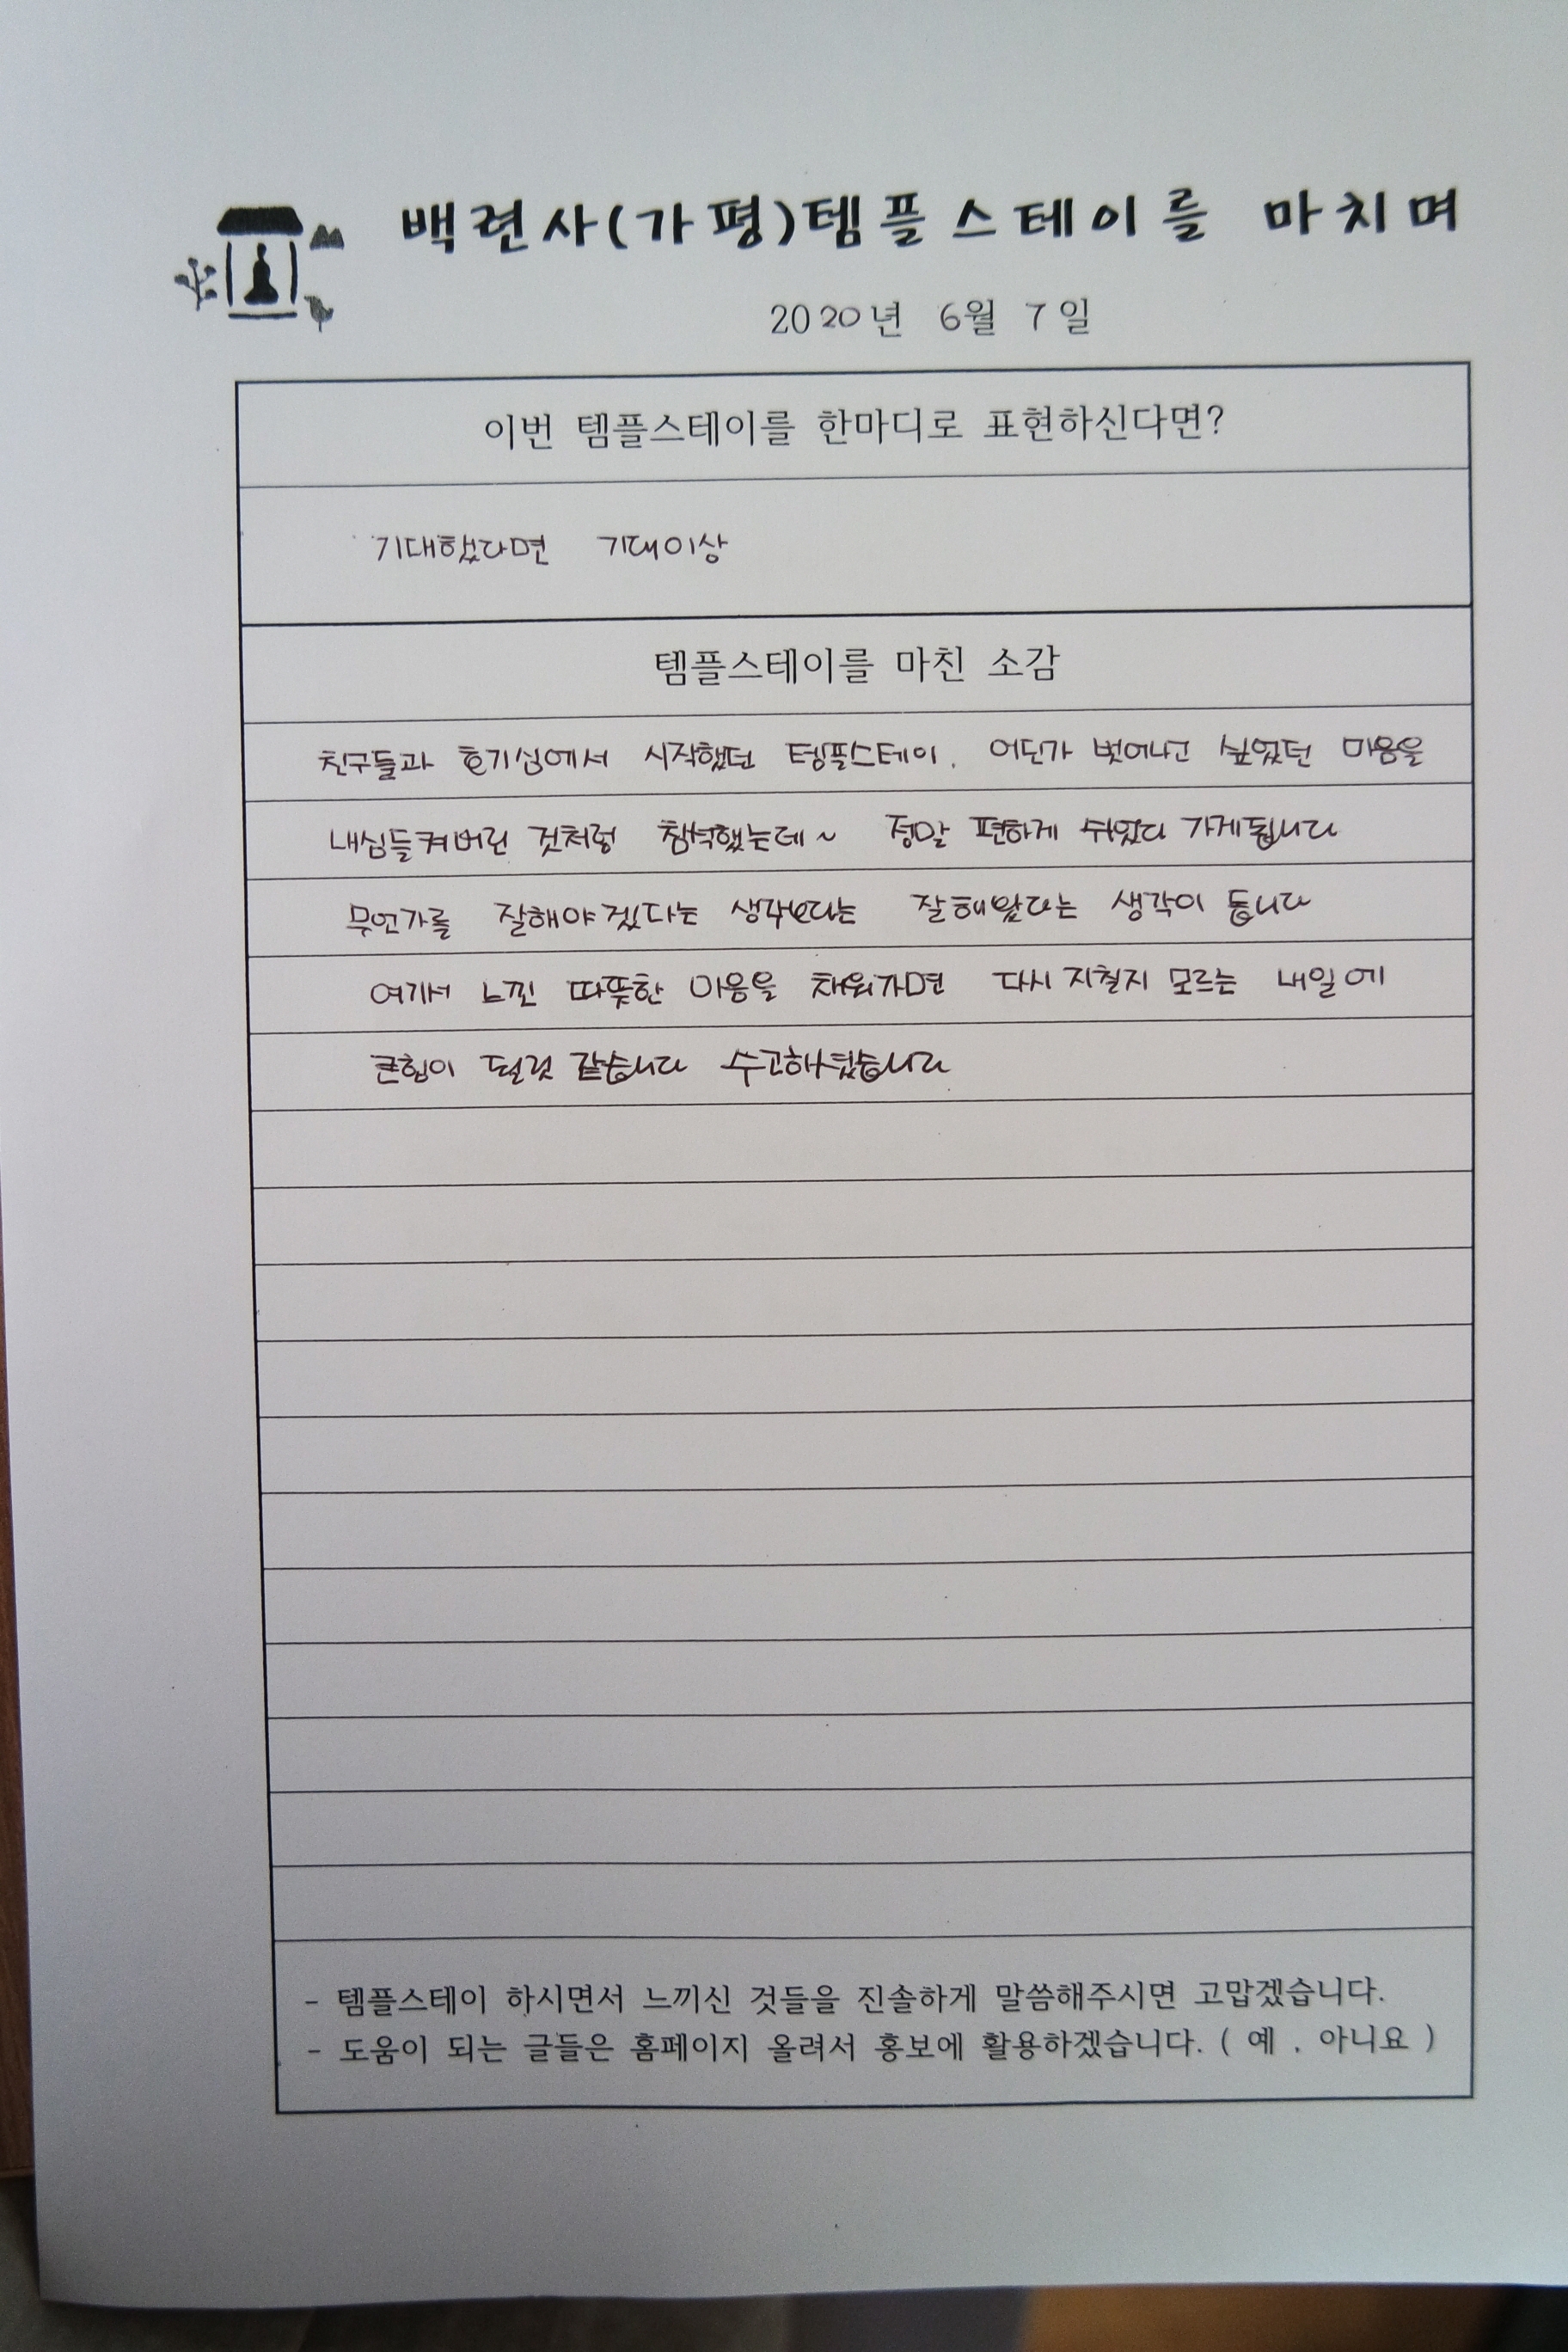 백련사(가평)템플스테이를 마치며
2020년 6월 7일
이번 템플스테이를 한마디로 표현하신다면?
기대했다면 기대이상
템플스테이를 마친 소감
친구들과 호기심에서 시작했던 템플스테이. 어딘가 벗어나고 싶었던 마음을
내심들켜버린 것처럼 참석했는데~ 정말 편하게 쉬었다 가게됩니다
무언가를 잘해야겠다는 생각보다는 잘해왔다는 생각이 듭니다
여기서 느낀 따뜻한 마음을 채워가면 다시 지칠지 모르는 내일에
큰힘이 될것 같습니다 수고하셨습니다
- 템플스테이 하시면서 느끼신 것들을 진솔하게 말씀해주시면 고맙겠습니다.
- 도움이 되는 글들은 홈페이지 올려서 홍보에 활용하겠습니다. ( 예 , 아니요 )